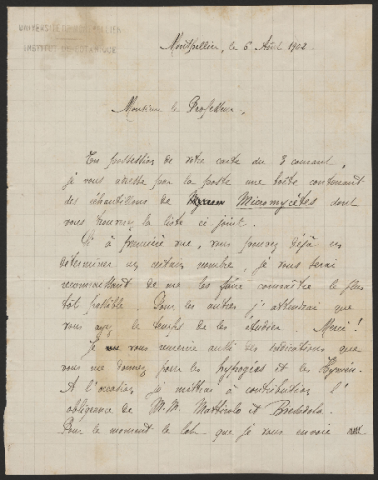 UNIVERSITÉ DE MONTPELLIER
INSTITUT DE BOTANIQUE
Montpellier, le 6 Août 1902
Monsieur le Professeur,
En possession de votre carte du 3 courant,
je vous adresse par la poste une boîte contenant
des échantillons de Micromycètes dont
vous trouverez la liste ci joint.
Si à première vue, vous pouvez déjà en
déterminer un certain nombre, je vous serai
reconnaissant de me les faire connaître le plus
tôt possible. Pour les autres j'attendrai que
vous ayez le temps de les étudier. Merci!
Je vous remercie aussi des indications que
vous me donnez pour les hypogés et les Hymén.
A l'occasion je mettrai à contribution l'
obligeance de M.M. Mattirolo et Bresadola.
Pour le moment le lot que je vous envoie